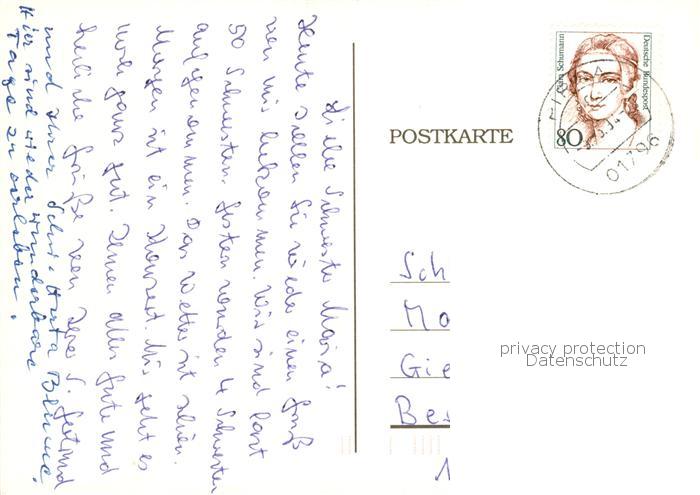 Liebe Schwester Maria!
Heute sollen Sie wieder einen Gruß
von mir bekommen. Wir sind fast
50 Schwestern. Gestern wurden 4 Schwestern
aufgenommen. Das Wetter ist schön.
Morgen ist ein Konzert. Mir geht es
noch ganz gut. Ihnen alles Gute und
herzliche Grüße von Ihrer S. Gertrud
und Ihrer Schw. Herta Blume.
Hier sind wieder wunderbare
Tage zu erleben.
POSTKARTE
Clara Schumann
Deutsche Bundespost
80
01796
Sch
Mo
Gie
Be
1
privacy protection
Datenschutz